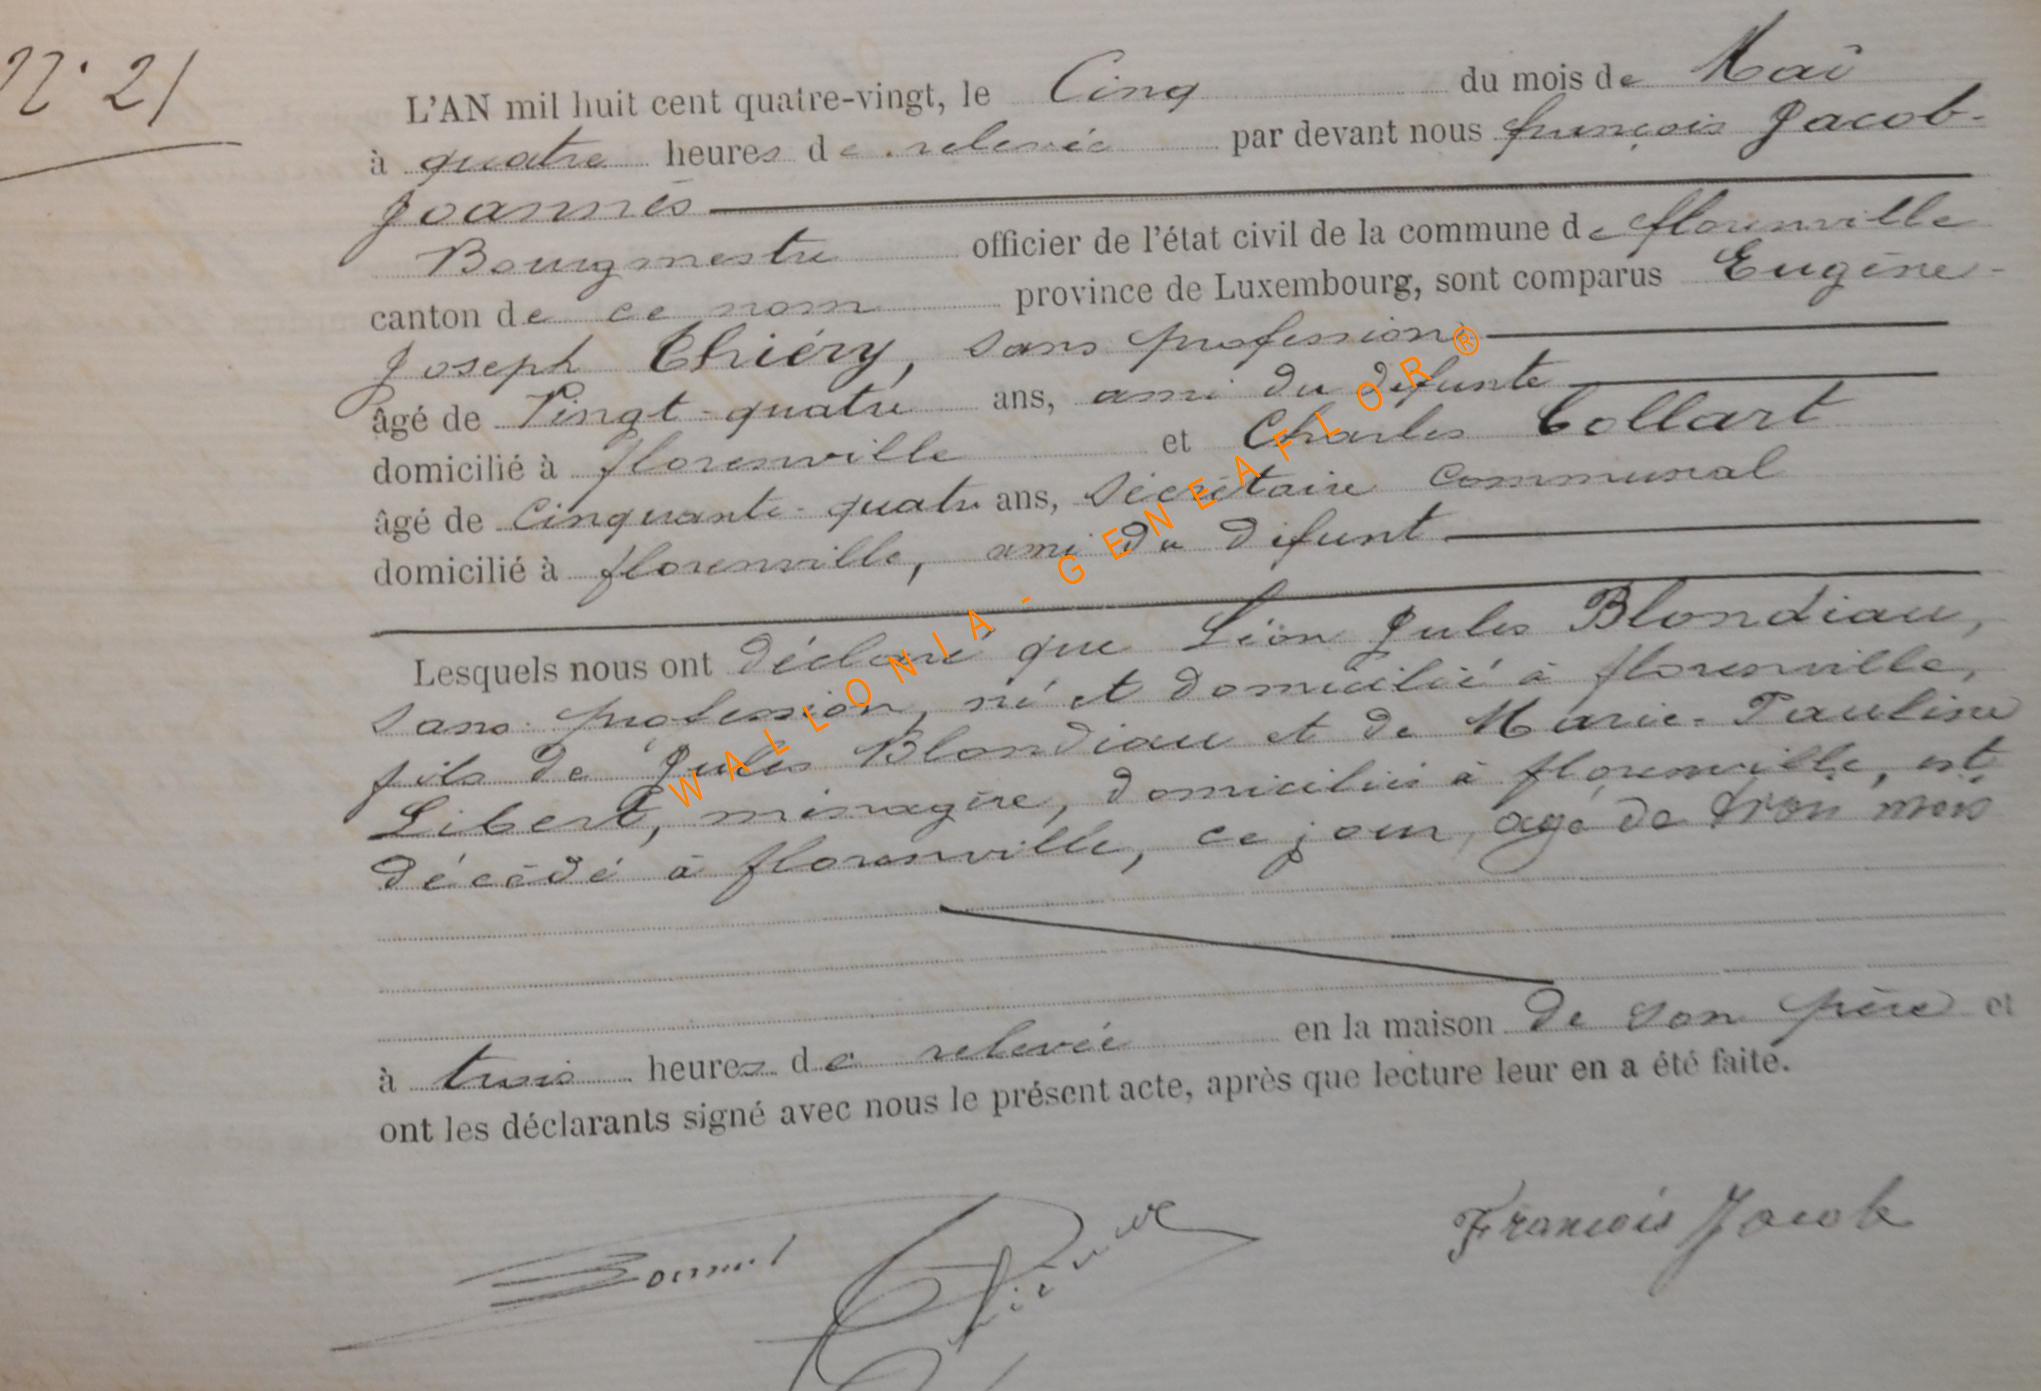 N° 21
L'AN mil huit cent quatre-vingt, le Cinq du mois de Mai
à quatre heures de relevée par devant nous françois Jacob-
Joannès
Bourgmestre officier de l'état civil de la commune de florenville
canton de ce nom province de Luxembourg, sont comparus Eugène-
Joseph Thiéry, sans profession
âgé de Vingt-quatre ans, ami du défunte
domicilié à florenville et Charles Collart
âgé de Cinquante-quatre ans, Sécrétaire communal
domicilié à florenville, ami du défunt
Lesquels nous ont déclaré que Léon Jules Blondiau,
sans profession, né et domicilié à florenville,
fils de Jules Blondiau et de Marie-Pauline
Libert, ménagère, domiciliés à florenville, est
décédé à florenville, ce jour, agé de trois mois
à trois heures de relevée en la maison de son père et
ont les déclarants signé avec nous le présent acte, après que lecture leur en a été faite.
François Jacob
WALLONIA - GENEAFLOR ®